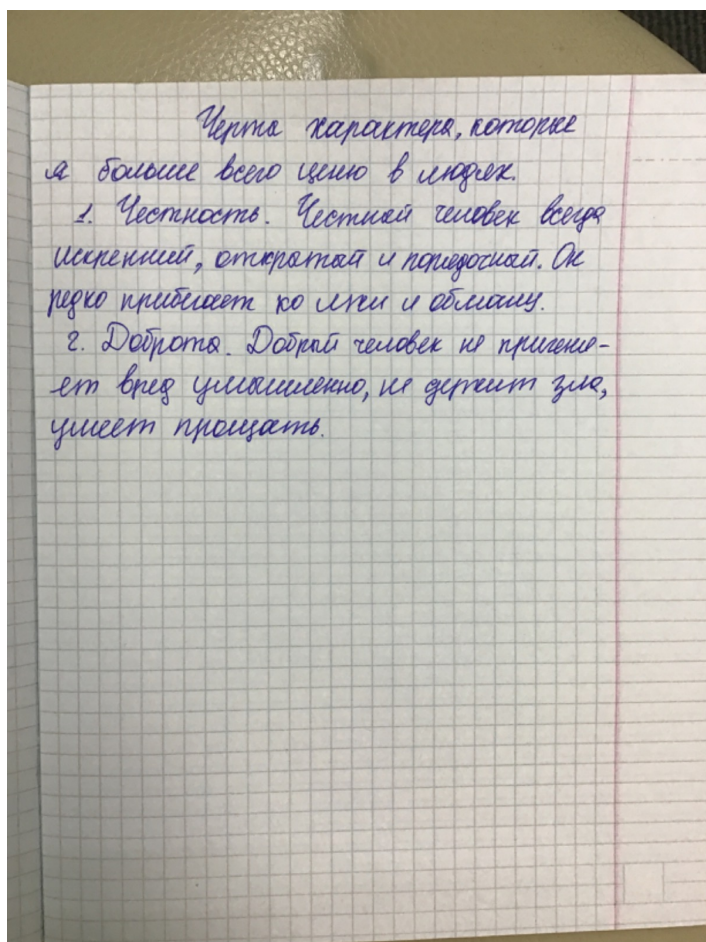 Черты характера, которые
я больше всего ценю в людях.
1. Честность. Честный человек всегда
искренний, открытый и порядочный. Он
редко прибегает ко лжи и обману.
2. Доброта. Добрый человек не причиня-
ет вред умышленно, не держит зла,
умеет прощать.